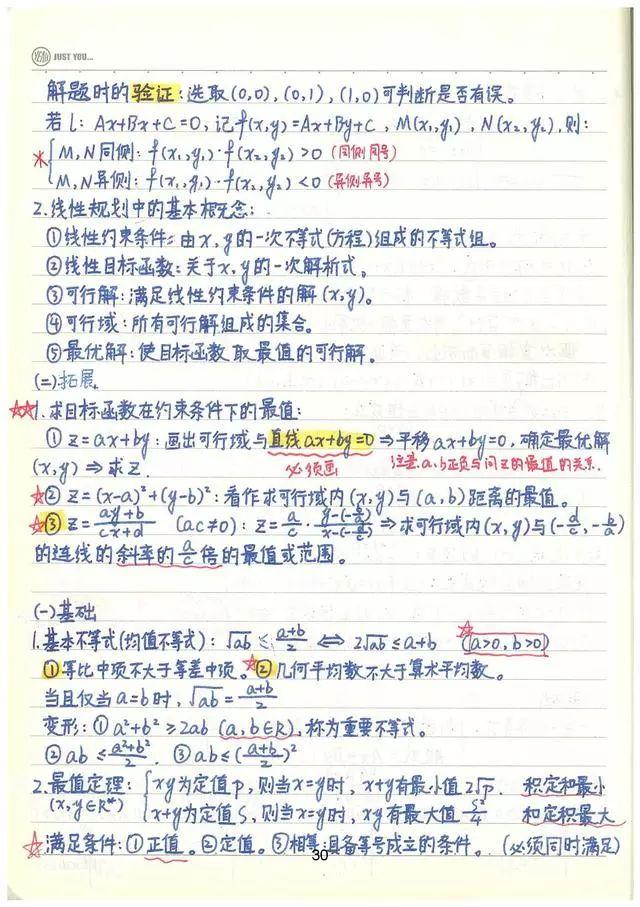 YEAH JUST YOU...
解题时的验证：选取(0,0),(0,1),(1,0)可判断是否有误。
若l：Ax+Bx+C=0,记f(x,y)=Ax+By+C，M(x₁,y₁)，N(x₂,y₂),则：
* { M,N同侧：f(x₁,y₁)·f(x₂,y₂)>0 (同侧同号)
M,N异侧：f(x₁,y₁)·f(x₂,y₂)<0 (异侧异号)
2.线性规划中的基本概念：
①线性约束条件：由x,y的一次不等式(方程)组成的不等式组。
②线性目标函数：关于x,y的一次解析式。
③可行解：满足线性约束条件的解(x,y)。
④可行域：所有可行解组成的集合。
⑤最优解：使目标函数取最值的可行解。
(二)拓展
☆☆1.求目标函数在约束条件下的最值：
①z=ax+by：画出可行域与直线ax+by=0⇒平移ax+by=0，确定最优解
(x,y)⇒求z. 必须画 注意a、b正负与问z的最值的关系.
☆②z=(x-a)²+(y-b)²：看作求可行域内(x,y)与(a,b)距离的最值。
☆③z=(ay+b)/(cx+d) (ac≠0)：z=a/c·(y-(-b/a))/(x-(-d/c))⇒求可行域内(x,y)与(-d/c,-b/a)
的连线的斜率的a/c倍的最值或范围。
(一)基础
1.基本不等式(均值不等式)：√ab≤(a+b)/2 ⇔ 2√ab≤a+b ☆(a>0,b>0)
①等比中项不大于等差中项。☆②几何平均数不大于算术平均数。
当且仅当a=b时，√ab=(a+b)/2
变形：①a²+b²≥2ab(a,b∈R),称为重要不等式。
②ab≤(a²+b²)/2. ③ab≤((a+b)/2)²
2.最值定理：{ xy为定值p，则当x=y时，x+y有最小值2√p. 积定和最小
(x,y∈R⁺) x+y为定值S，则当x=y时，xy有最大值S²/4 和定积最大
☆满足条件：①正值。②定值。③相等：具备等号成立的条件。(必须同时满足)
30